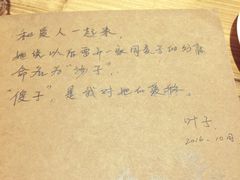 和爱人一起来,
她说以后要开一家网麦子的分店
命名为“沙子”,
“傻子”,是我对她的爱称。
叶子
2016.10月